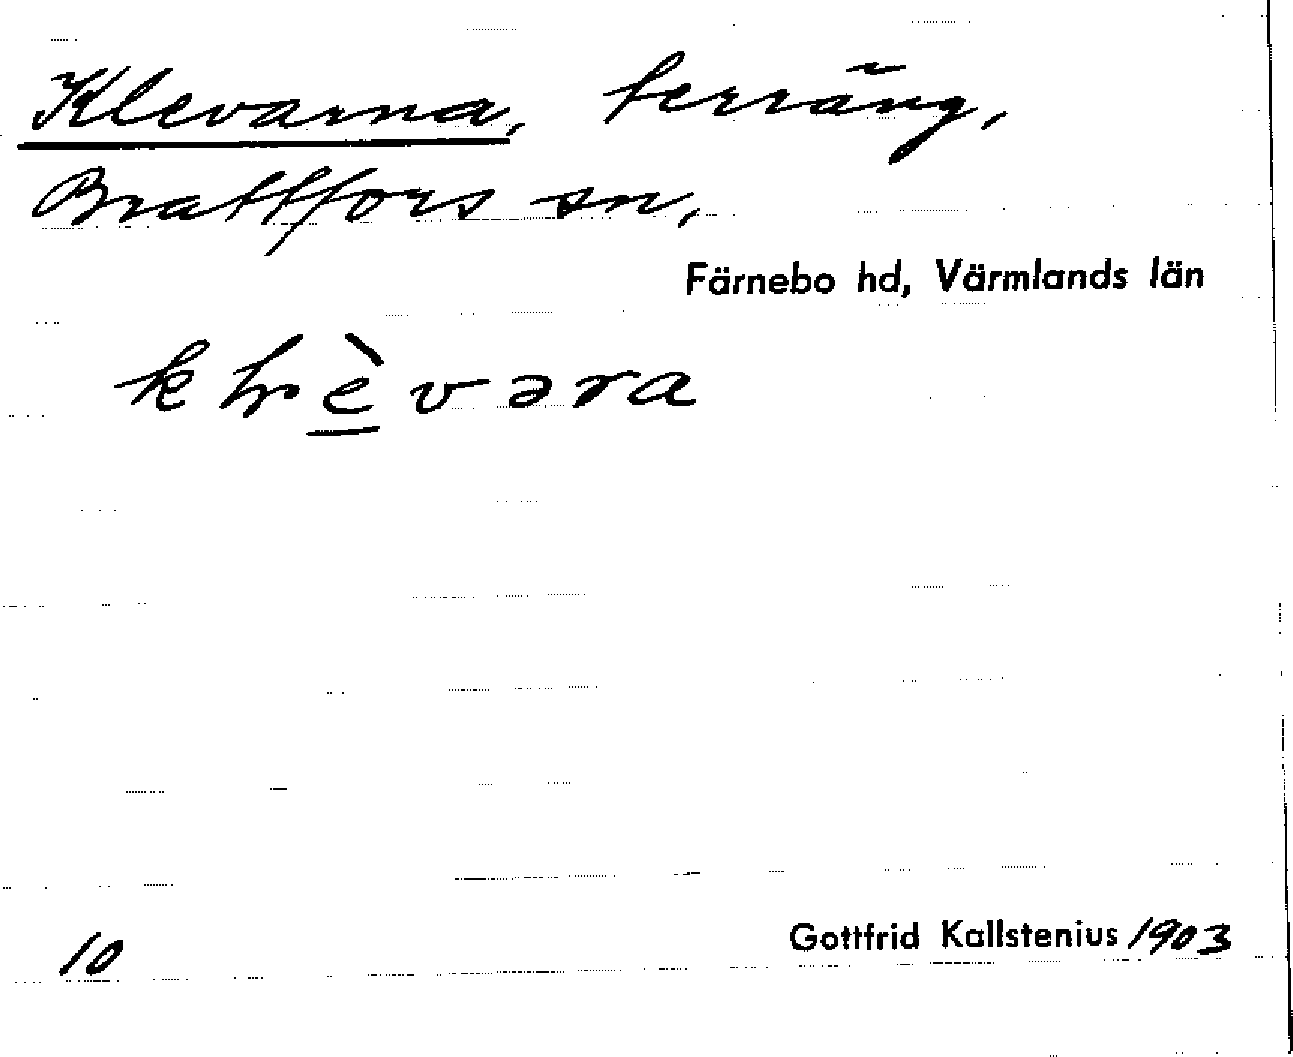 Klevarna, terräng,
Brattfors sn,
Färnebo hd, Värmlands län
klèvəra
10
Gottfrid Kallstenius 1903